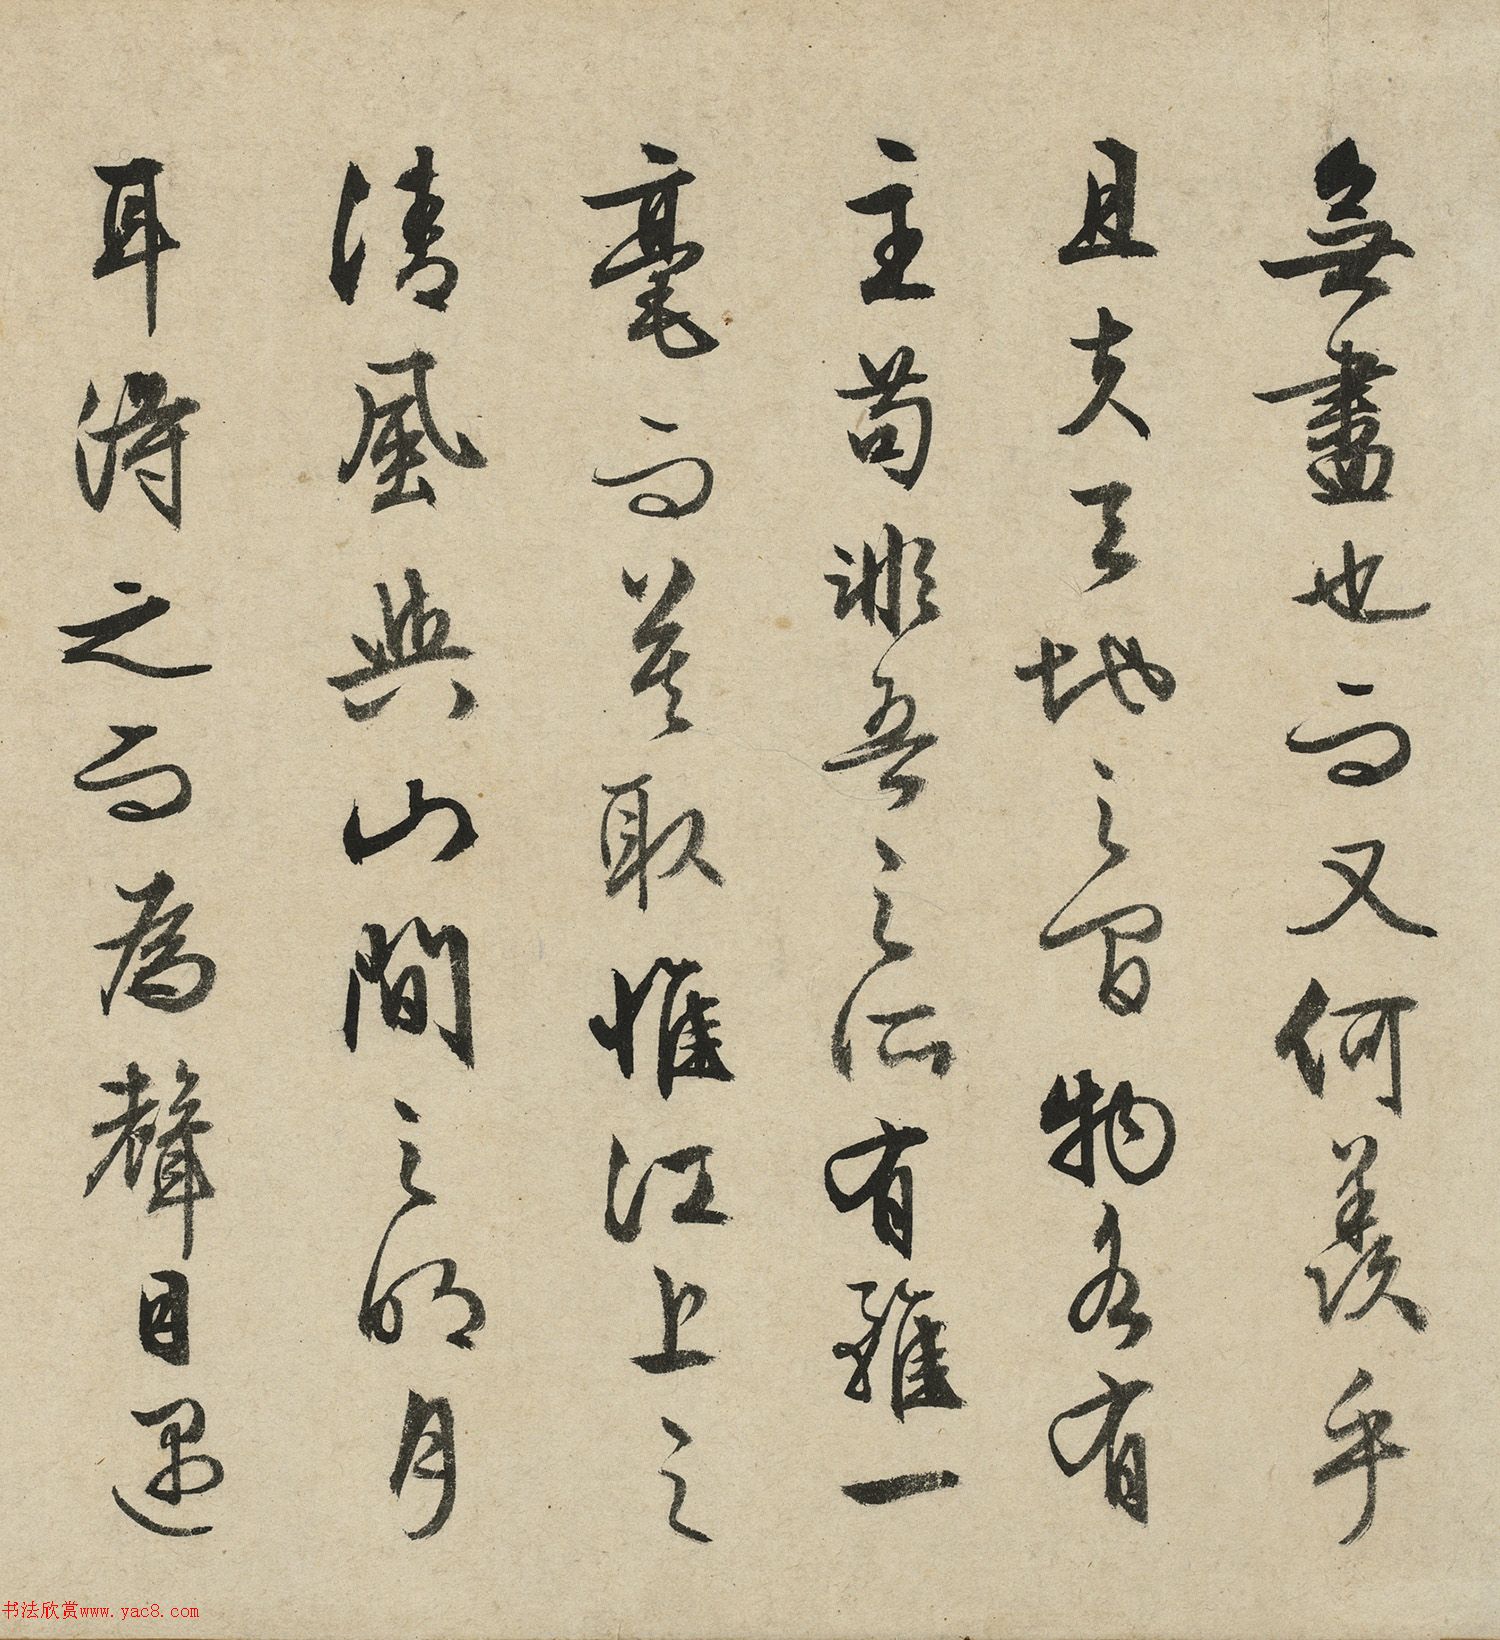 無盡也而又何羨乎
且夫天地之間物各有
主苟非吾之所有雖一
毫而莫取惟江上之
清風與山間之明月
耳得之而為聲目遇
书法欣赏www.yac8.com